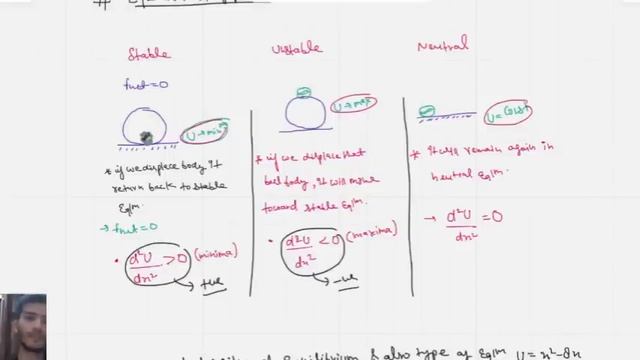 Stable
fnet = 0
U → min
* if we displace body, it
return back to stable
Eqlm.
→ fnet = 0
• d²U/dx² > 0 (minima)
→ +ve
Unstable
U → max
* if we displace that
body, it will move
toward stable Eqlm.
• d²U/dx² < 0 (maxima)
→ -ve
Neutral
U = Const
* It will remain again in
neutral Eqlm.
→ d²U/dx² = 0
of Equilibrium & also type of Eqlm U = x² - 8x